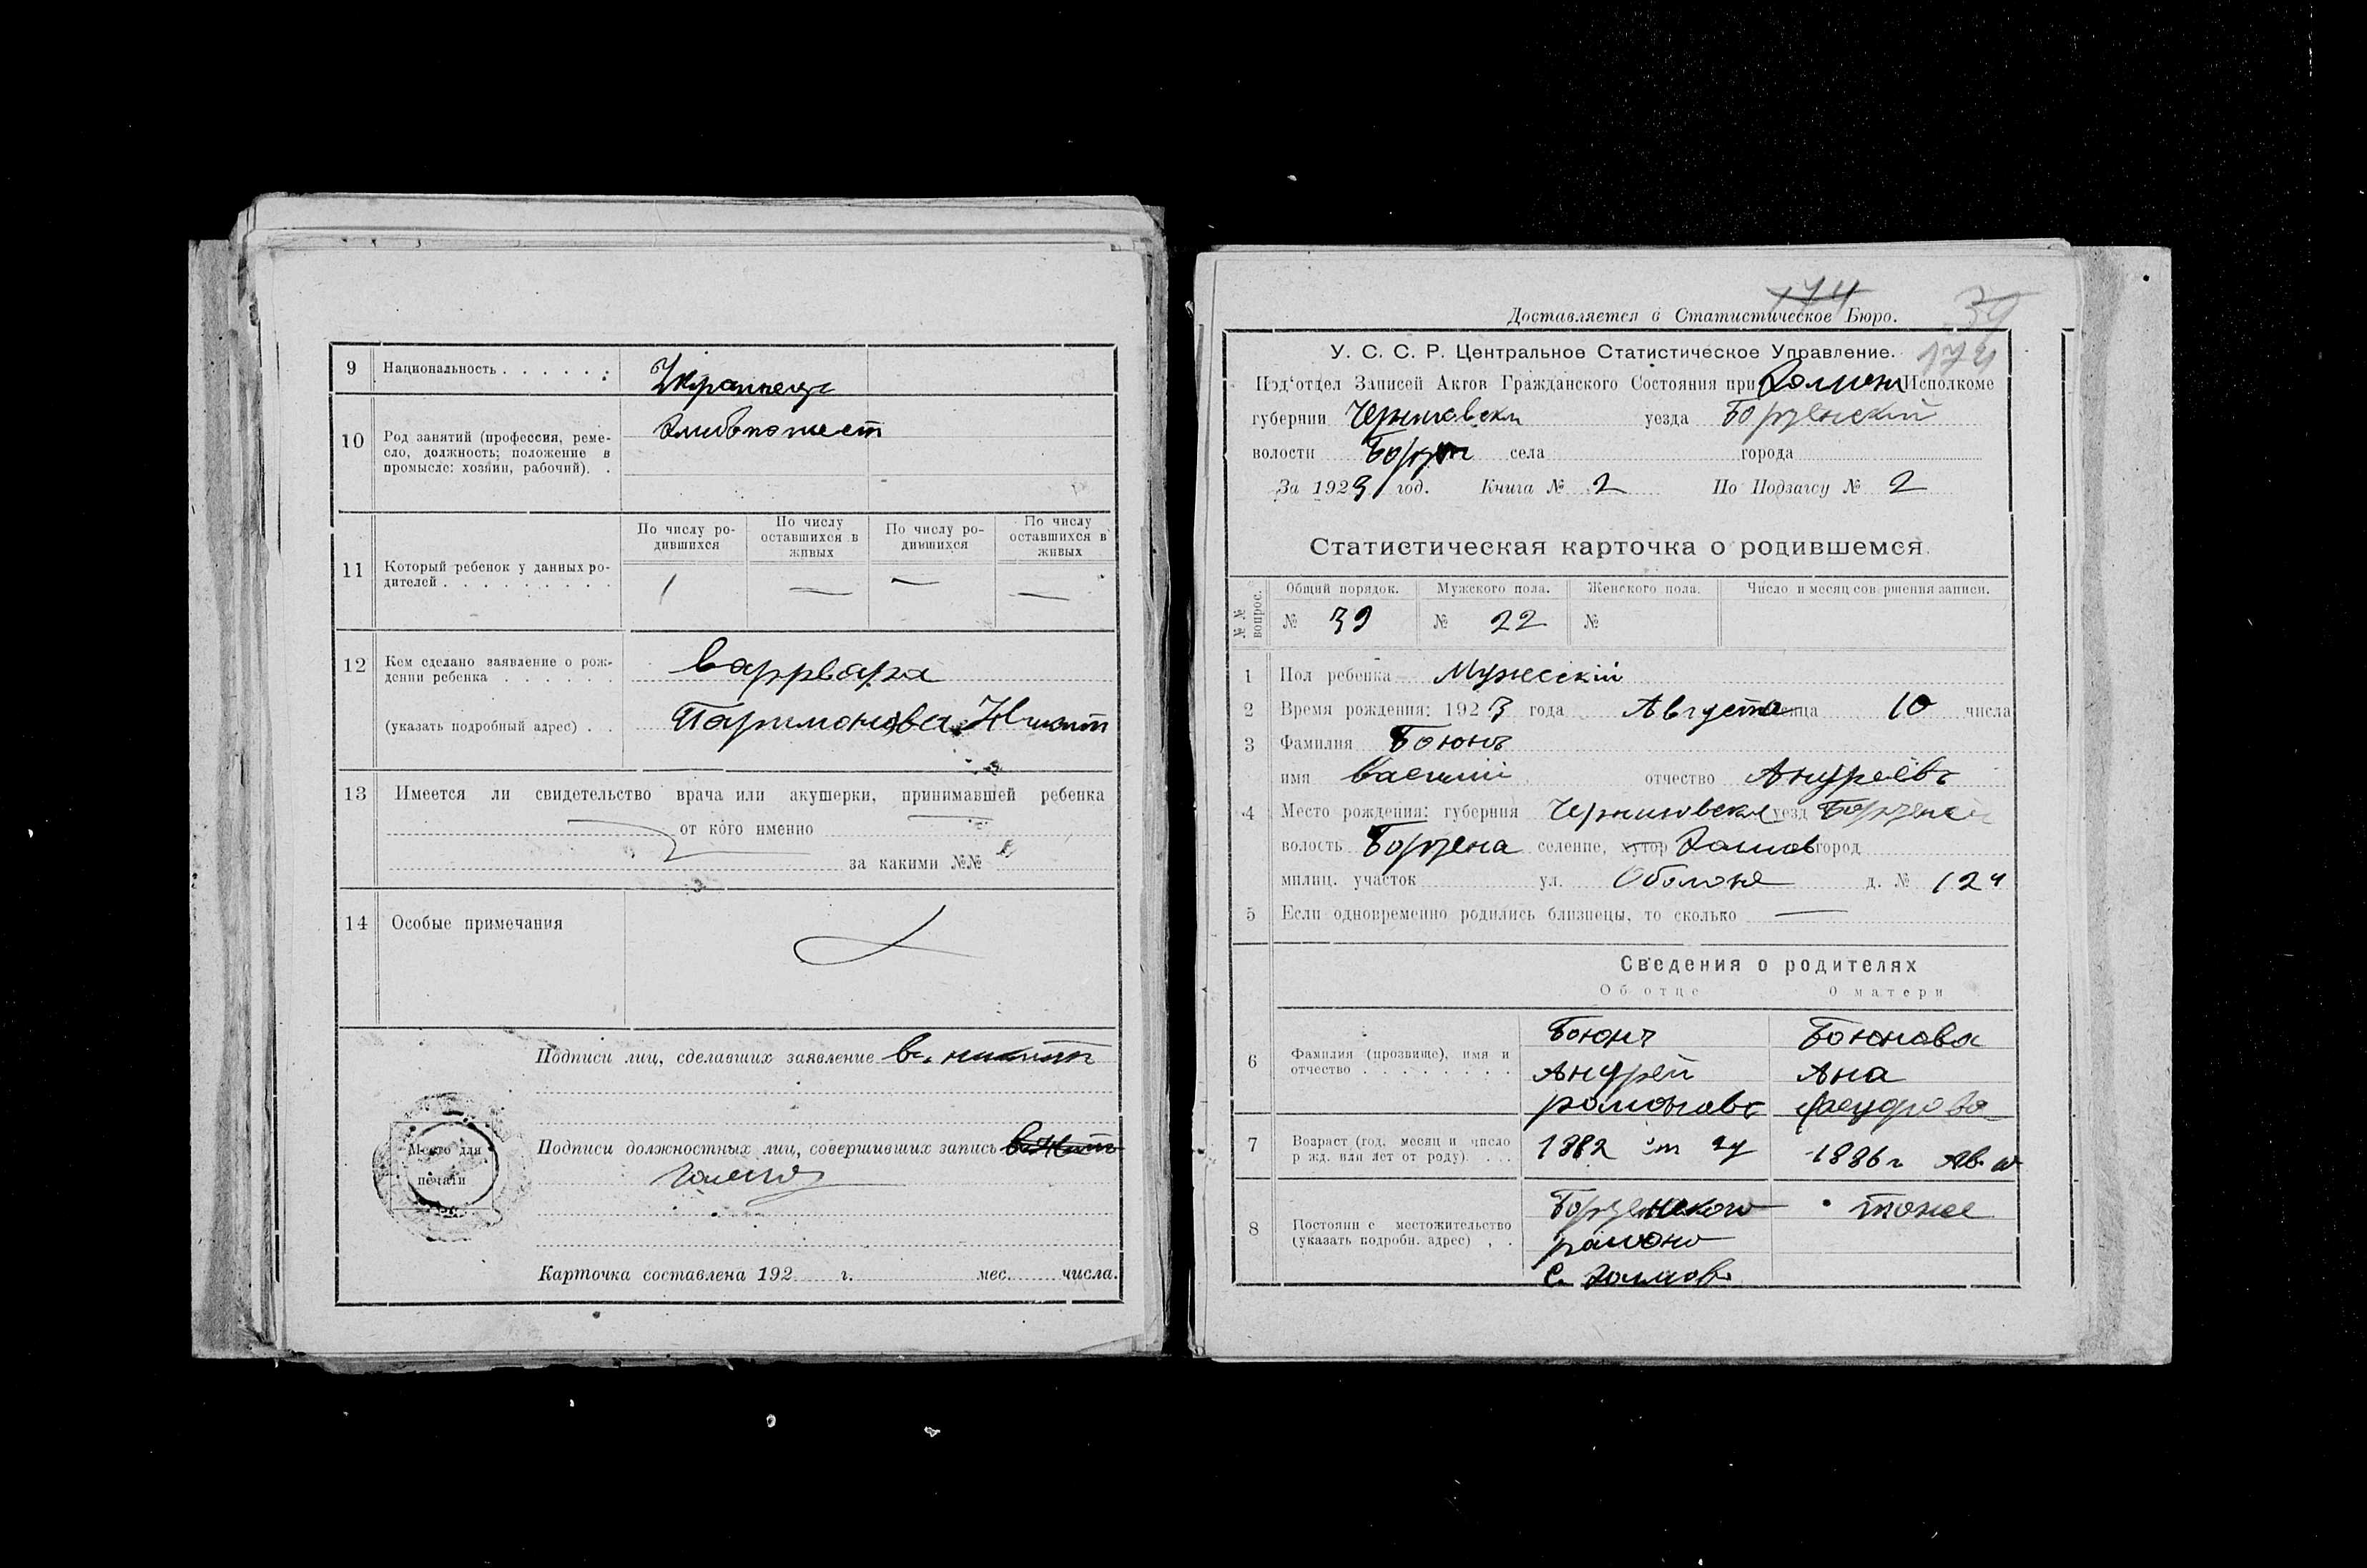 9 Национальность . . . . . . Украинец
10 Род занятий (профессия, реме-
сло, должность; положение в
промысле: хозяин, рабочий). .
По числу ро-
дившихся
По числу
оставшихся в
живых
По числу ро-
дившихся
По числу
оставшихся в
живых
11 Который ребенок у данных ро-
дителей . . . . . . . . . 1 — — —
12 Кем сделано заявление о рож-
дении ребенка . . . . . .
(указать подробный адрес) . .
13 Имеется ли свидетельство врача или акушерки, принимавшей ребенка
от кого именно
за какими №№
14 Особые примечания
Подписи лиц, сделавших заявление
Место для
печати
Подписи должностных лиц, совершивших запись
Карточка составлена 192 г. мес. числа.
174
Доставляется в Статистическое Бюро.
39
174
У. С. С. Р. Центральное Статистическое Управление.
Под'отдел Записей Актов Гражданского Состояния при Исполкоме
губернии Черниговск уезда Борзенский
волости Борзен села города
За 1923 год. Книга № 2 По Подзагсу № 2
Статистическая карточка о родившемся.
№№ вопрос.
Общий порядок. Мужского пола. Женского пола. Число и месяц сов ршения записи.
№ 39 № 22 №
1 Пол ребенка Мужескій
2 Время рождения: 1923 года Августа месяца 10 числа
3 Фамилия Боюнъ
имя Василий отчество Андреевъ
4 Место рождения: губерния Черниговская уезд Борзенский
волость Борзена селение, хутор город
милиц. участок ул. Оболоне д. № 124
5 Если одновременно родились близнецы, то сколько —
Сведения о родителях
Об отце О матери
6 Фамилия (прозвище), имя и
отчество . . . . . . . .
Боюнъ Боюнова
Андрей Ана
романовъ
7 Возраст (год, месяц и число
р жд. или лет от роду). . . .
1882 1886 г
8 Постоянн е местожительство
(указать подробн. адрес) , .
Борзенского тоже
району
с.